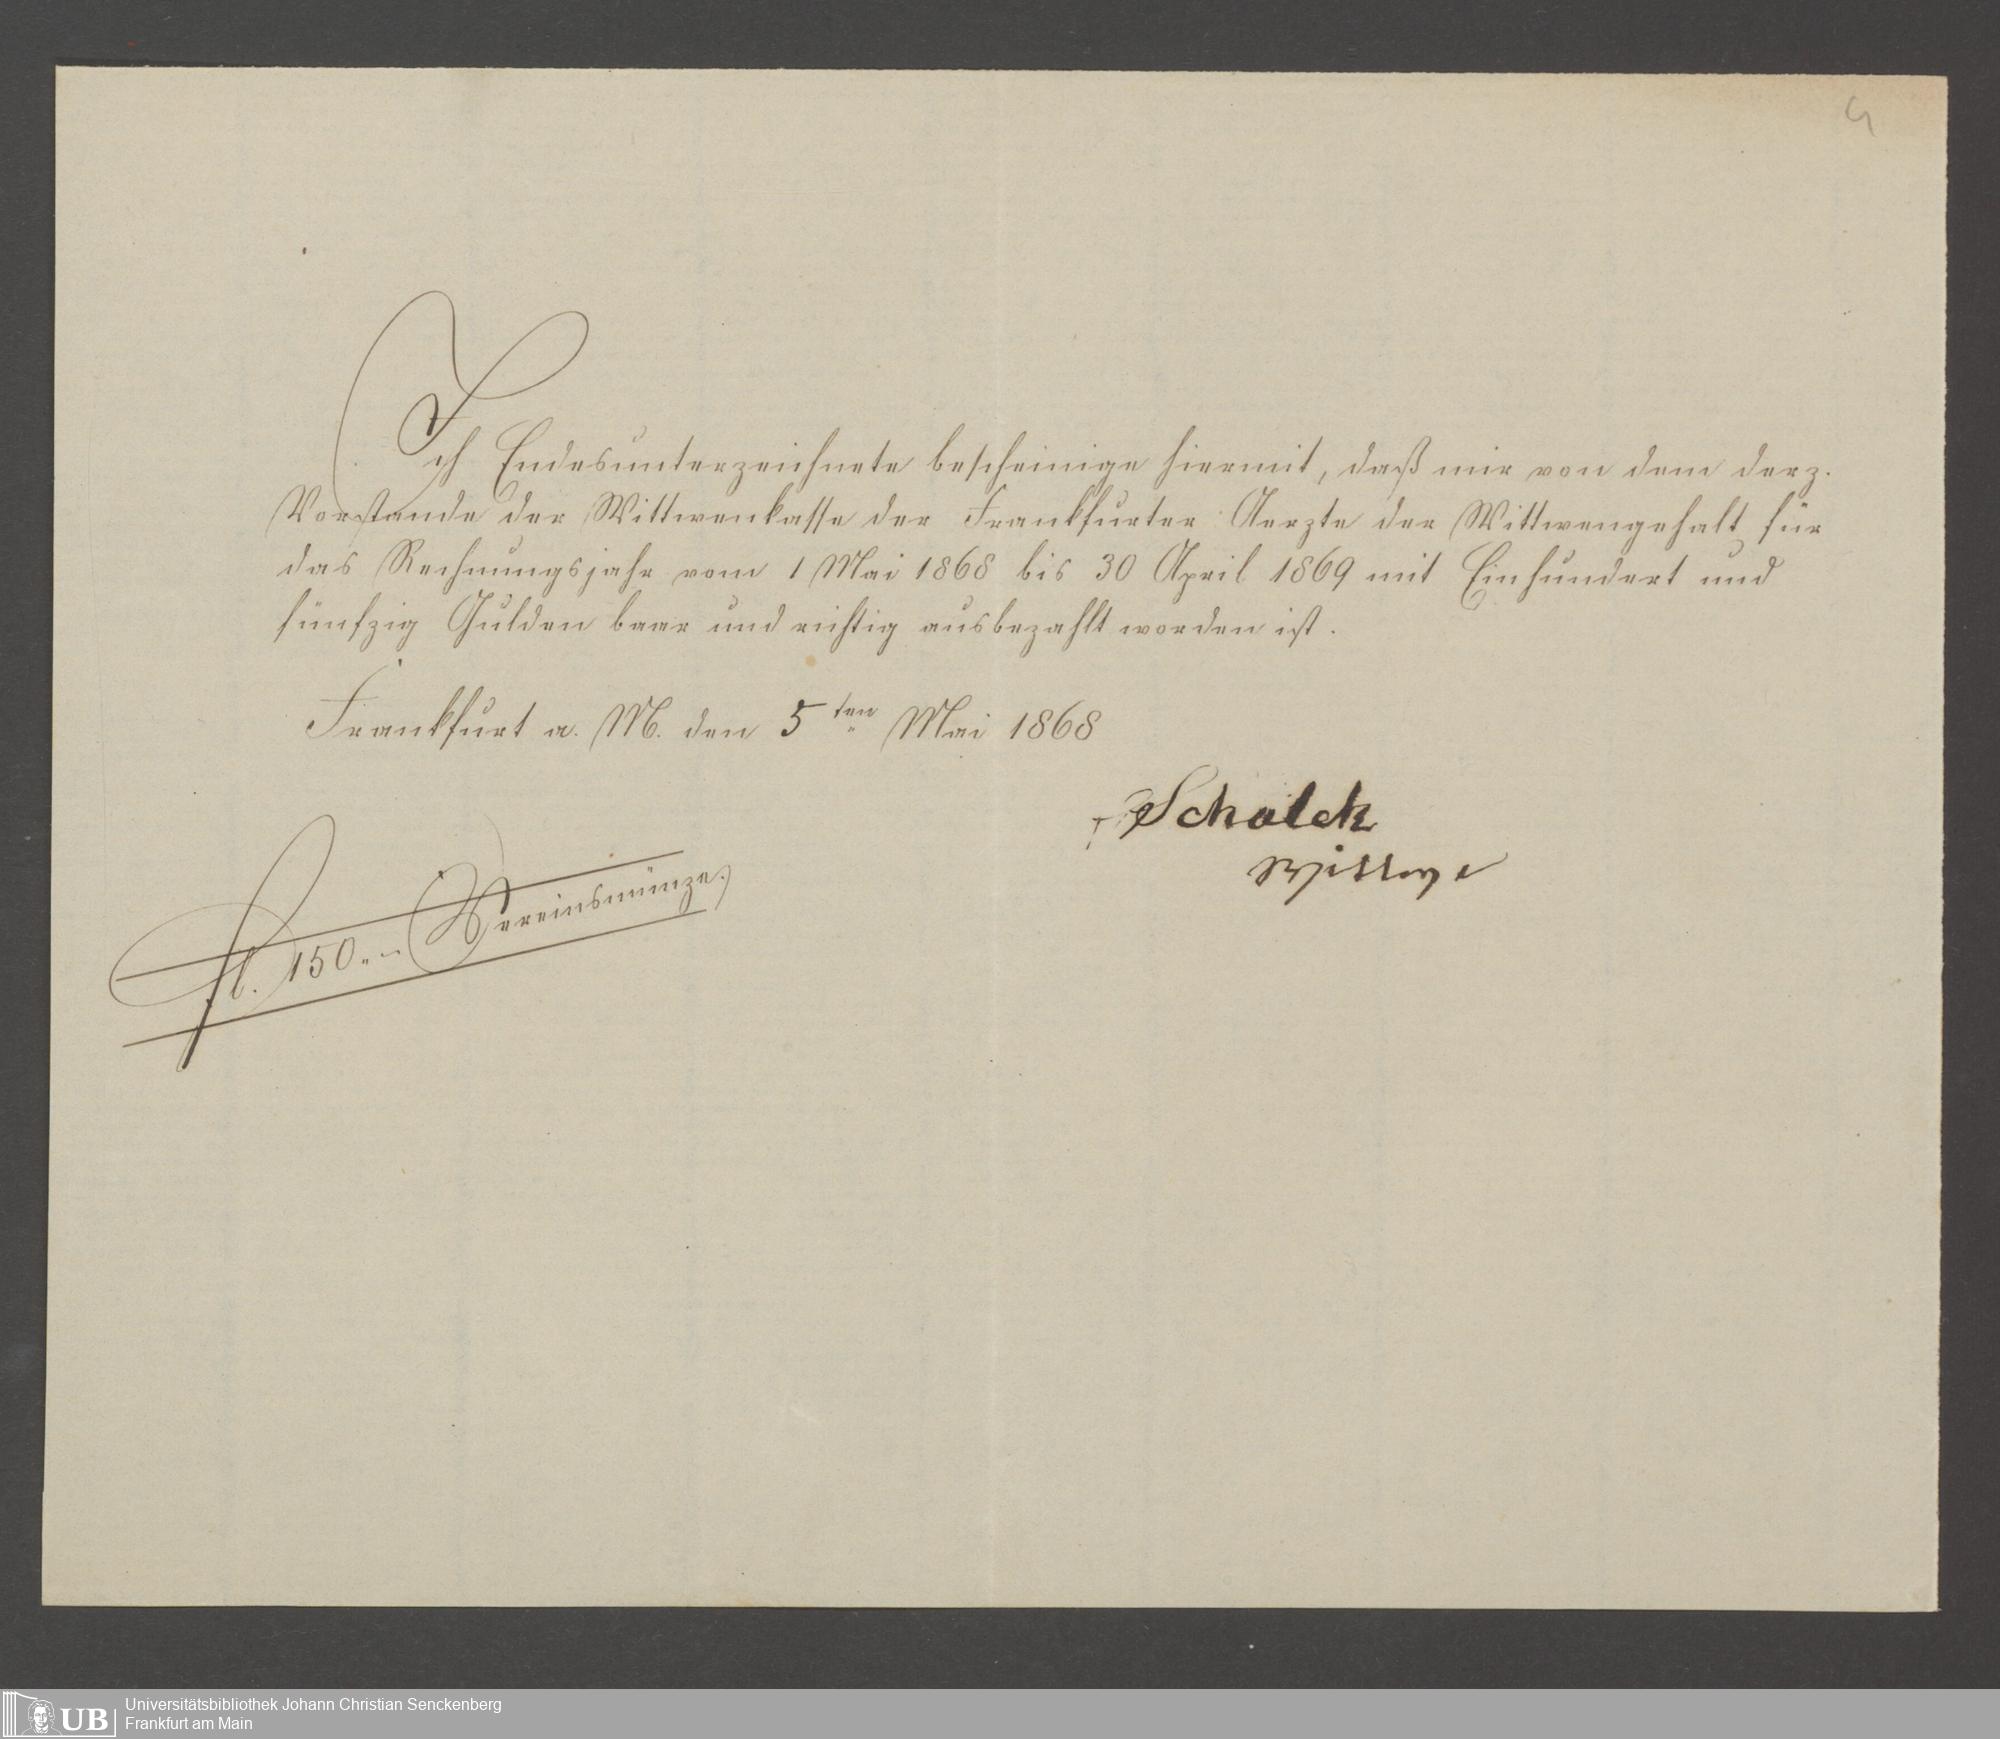 Ich Endesunterzeichnete bescheinige hiermit, daß mir von dem derz.
Vorstande der Wittwenkasse der Frankfurter Aerzte der Wittwengehalt für
das Rechnungsjahr vom 1 Mai 1868 bis 30 April 1869 mit Einhundert und
fünfzig Gulden baar und richtig ausbezahlt worden ist.
Frankfurt a. M. den 5ten Mai 1868
Schalck
Wittwe
fl. 150.„– Vereinsmünze.
UB
Universitätsbibliothek Johann Christian Senckenberg
Frankfurt am Main